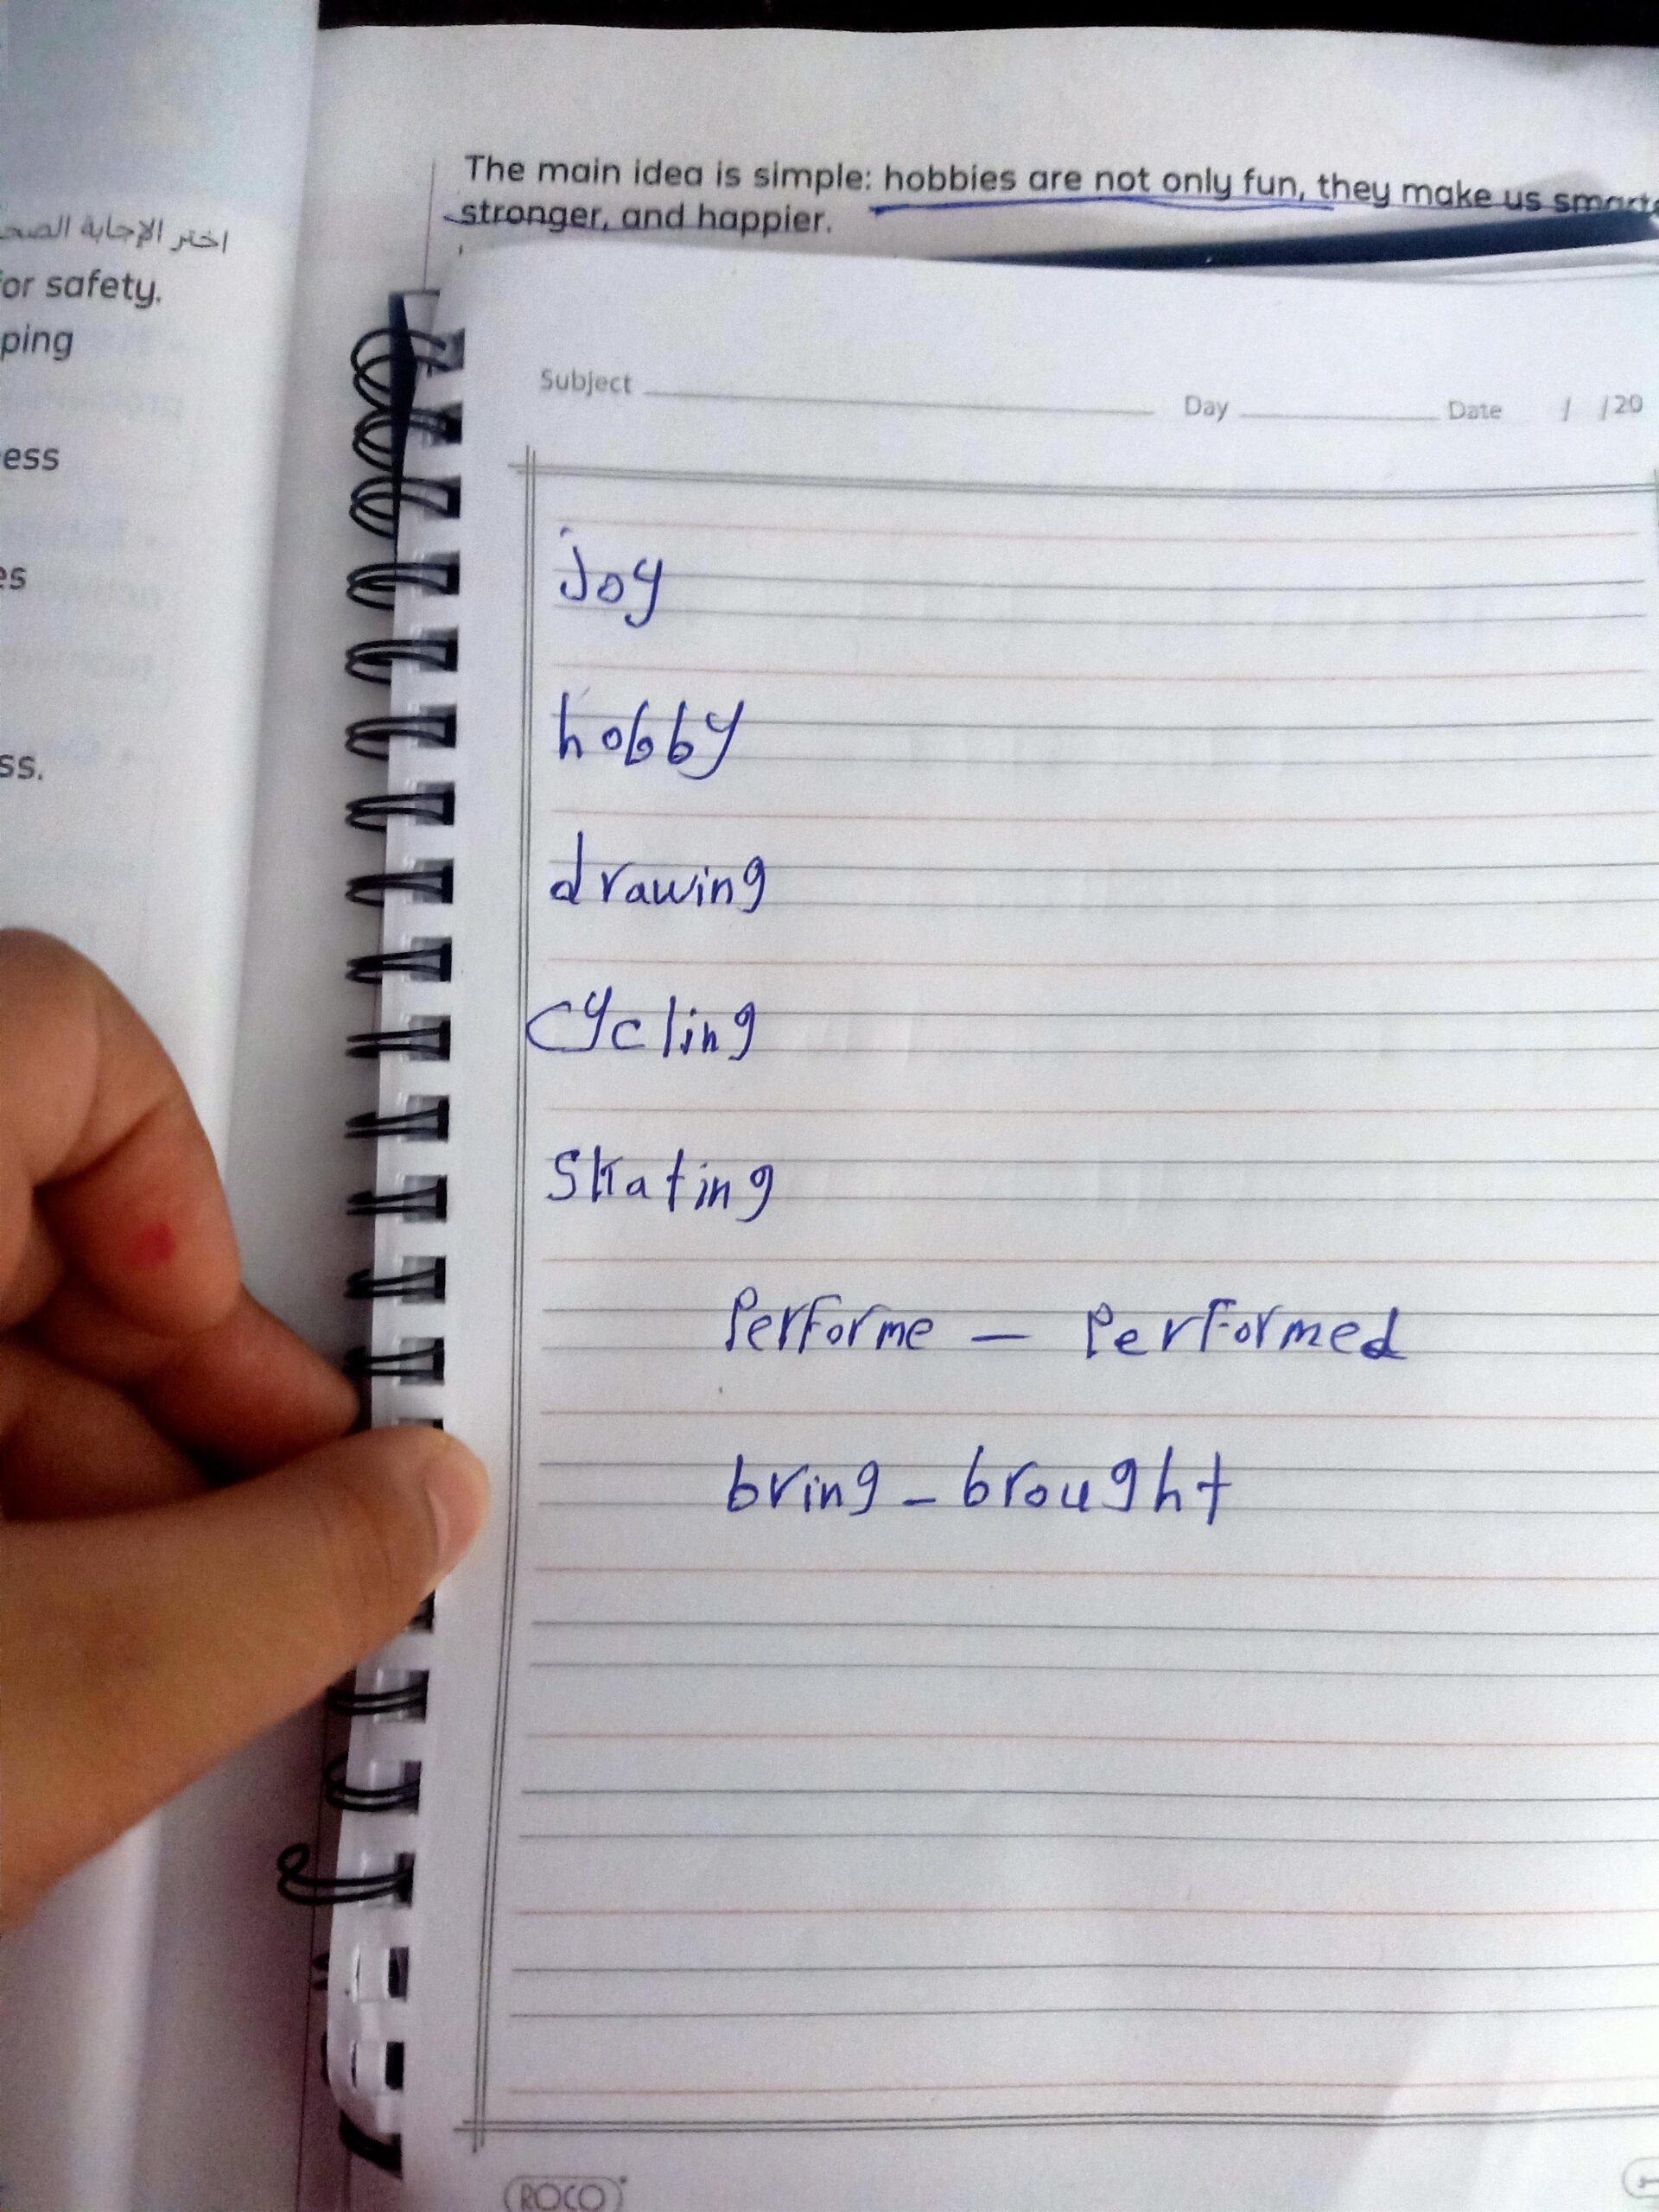 The main idea is simple: hobbies are not only fun, they make us
stronger, and happier.
اختر الإجابة
for safety.
ping
ess
es
ss.
Subject
Day
Date / /20
joy
hobby
drawing
cycling
skating
Performe — Performed
bring - brought
ROCO